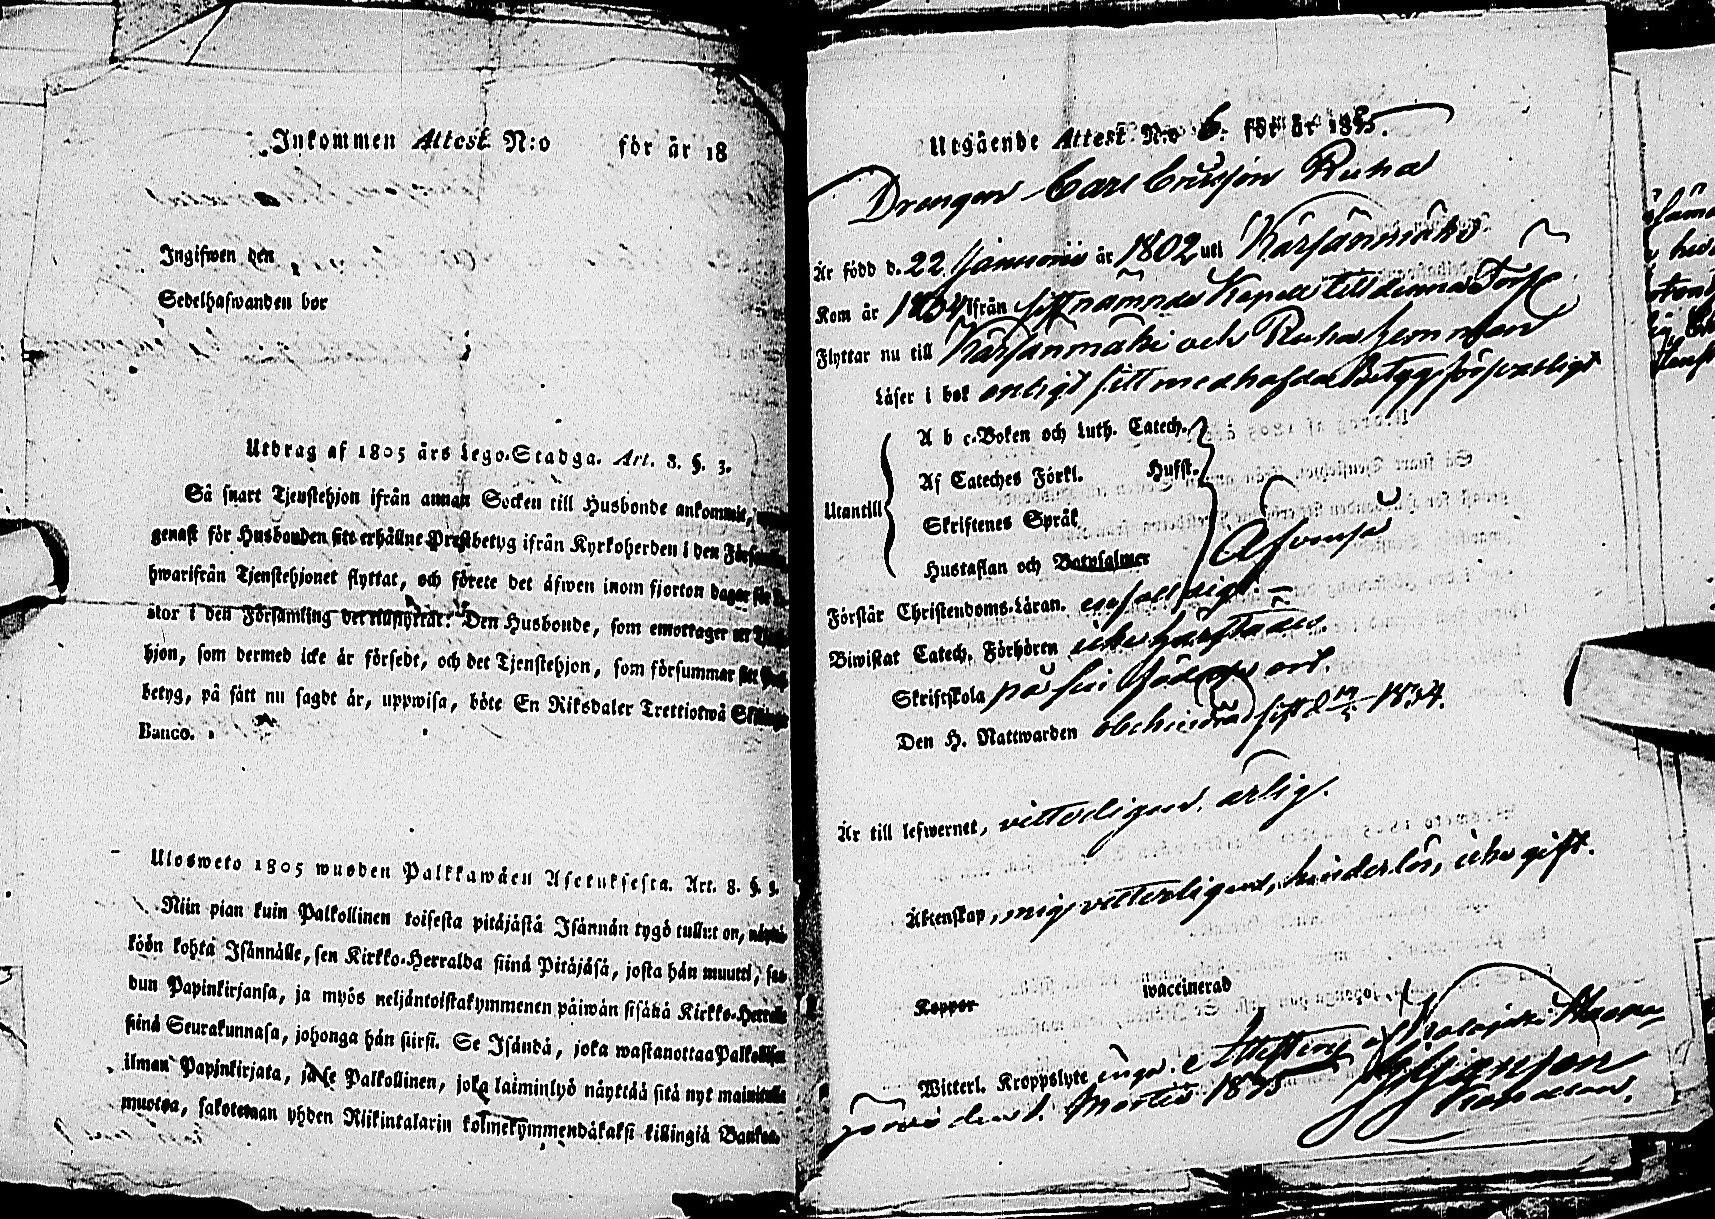 Inkommen Attest N:o för år 18
Ingifwen den
Sedelhafwanden bor
Utdrag af 1805 års Lego-Stadga. Art. 8. §. 3.
Så snart Tjenstehjon ifrån annan Socken till Husbonde ankommit,
genast för Husbonden sitt erhållne Prestbetyg ifrån Kyrkoherden i den
hwarifrån Tjenstehjonet flyttat, och förete det äfwen inom fjorton dagar
stor i den Församling det tillflyttat: Den Husbonde, som emottager
hjon, som dermed icke är försedt, och det Tjenstehjon, som försummar sitt
betyg, på sätt nu sagdt är, uppwisa, böte En Riksdaler Trettiotwå
Banco.
Ulosweto 1805 wuoden Palkkawäen Asetuksesta. Art. 8. §. 3.
Niin pian kuin Palkollinen toisesta pitäjästä Isännän tygö tullut on,
köön kohta Isännälle, sen Kirkko-Herralda siinä Pitäjäsä, josta hän muutti,
dun Papinkirjansa, ja myös neljäntoistakymmenen päiwän sisällä Kirkko-Herralle
siinä Seurakunnasa, johonga hän siirsi. Se Isändä, joka wastanottaa Palkollisen
ilman Papinkirjata, ja se Palkollinen, joka laiminlyö näyttää sitä nyt mainitulla
muotoa, sakotetaan yhden Riikintalarin kolmekymmendäkaksi killingiä Bankoa.
Utgående Attest N:o 6. för år 1835.
Drengen Carl Ericsson Ruha
Är född d. 22 Januarii år 1802 uti Kärsänmäki
Kom år 1834 ifrån sistnämnde Kapell till denna Förs.
Flyttar nu till Kärsänmäki och Ruha hemman
Läser i bok enligt sitt medhafda Betyg försvarligt
A b c-Boken och Luth. Catech.
Af Cateches Förkl. Husfl.
Utantill
Skriftenes Språk
Hustaflan och Botpsalmer
Förstår Christendoms-Läran. enfalldigt.
Biwistat Catech. Förhören icke härstädes
Skriftskola på sin födelse ort.
Den H. Nattwarden obehindrad sist d. 1834.
Är till lefwernet, vitterligen ärlig.
Äktenskap, mig vetterligen, hinderlös, icke gift.
Koppor waccinerad
Witterl. Kroppslyte inga.
den 1. Martii 1835